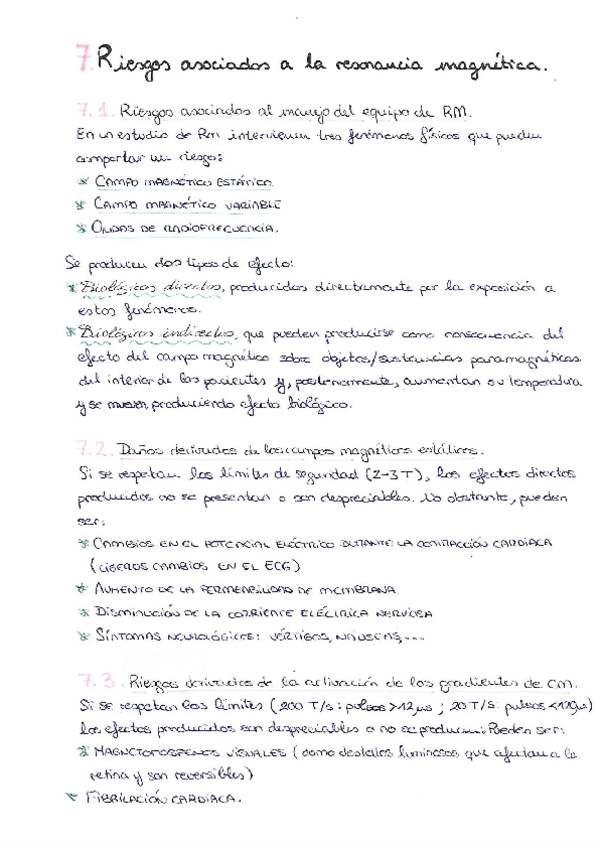 7. Riesgos asociados a la resonancia magnética.
7.1. Riesgos asociados al manejo del equipo de RM.
En un estudio de Rm intervienen tres fenómenos físicos que pueden
comportar un riesgo:
* CAMPO MAGNÉTICO ESTÁTICO
* CAMPO MAGNÉTICO VARIABLE
* ONDAS DE RADIOFRECUENCIA.
Se producen dos tipos de efecto:
* Biológicos directos, producidos directamente por la exposición a
estos fenómenos.
* Biológicos indirectos, que pueden producirse como consecuencia del
efecto del campo magnético sobre objetos/sustancias paramagnéticas
del interior de los pacientes y, posteriormente, aumentan su temperatura
y se mueven, produciendo efecto biológico.
7.2. Daños derivados de los campos magnéticos estáticos.
Si se respetan los límites de seguridad (2-3 T), los efectos directos
producidos no se presentan o son despreciables. No obstante, pueden
ser:
* CAMBIOS EN EL POTENCIAL ELÉCTRICO DURANTE LA CONTRACCIÓN CARDÍACA
(LIGEROS CAMBIOS EN EL ECG)
* AUMENTO DE LA PERMEABILIDAD DE MEMBRANA
* DISMINUCIÓN DE LA CORRIENTE ELÉCTRICA NERVIOSA
* SÍNTOMAS NEUROLÓGICOS: VÉRTIGOS, NAUSEAS,...
7.3. Riesgos derivados de la activación de los gradientes de CM.
Si se respetan los límites (200 T/s: pulsos >12μs ; 20 T/S: pulsos <120μs)
los efectos producidos son despreciables o no se producen. Pueden ser:
* MAGNETOFOSFENOS VISUALES (como destellos luminosos que afectan a la
retina y son reversibles)
* FIBRILACIÓN CARDÍACA.